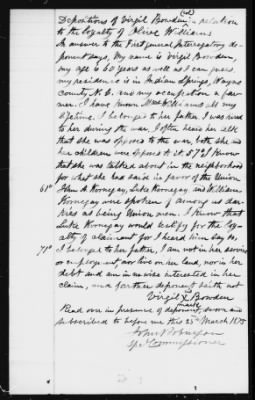 Depositions of Virgil Bowden (col) in relation
to the loyalty of Olivet Williams
In answer to the first general Interrogatory de-
ponent says, My name is Virgil Bowden,
my age is 60 years as well as I can guess,
my residence is in Indian Springs, Wayne
county N.C. and my occupation a far-
mer. I have known Mrs Williams all my
lifetime. I belonged to her father, I was hired
to her during the war. I often hears her talk
that she was opposed to the war, both she and
her children were opposed to it. 57th I know
that she was talked about in the neighborhood
for what she had said in favor of the Union
61st John A Kornegay, Luke Kornegay and William
Kornegay were spoken of among us dar-
kies as being Union men. I know that
Luke Kornegay would testify for the loy-
alty of claimant for I heard him say so,
71st I belonged to her father, I am not in her service
or employment, nor live on her land, nor in her
debt and am in no wise interested in her
claim, and further deponent saith not
Virgil his X mark Bowden
Read over in presence of deponent, sworn and
subscribed to before me this 25th March 1875
John Robinson
Spl Commissioner